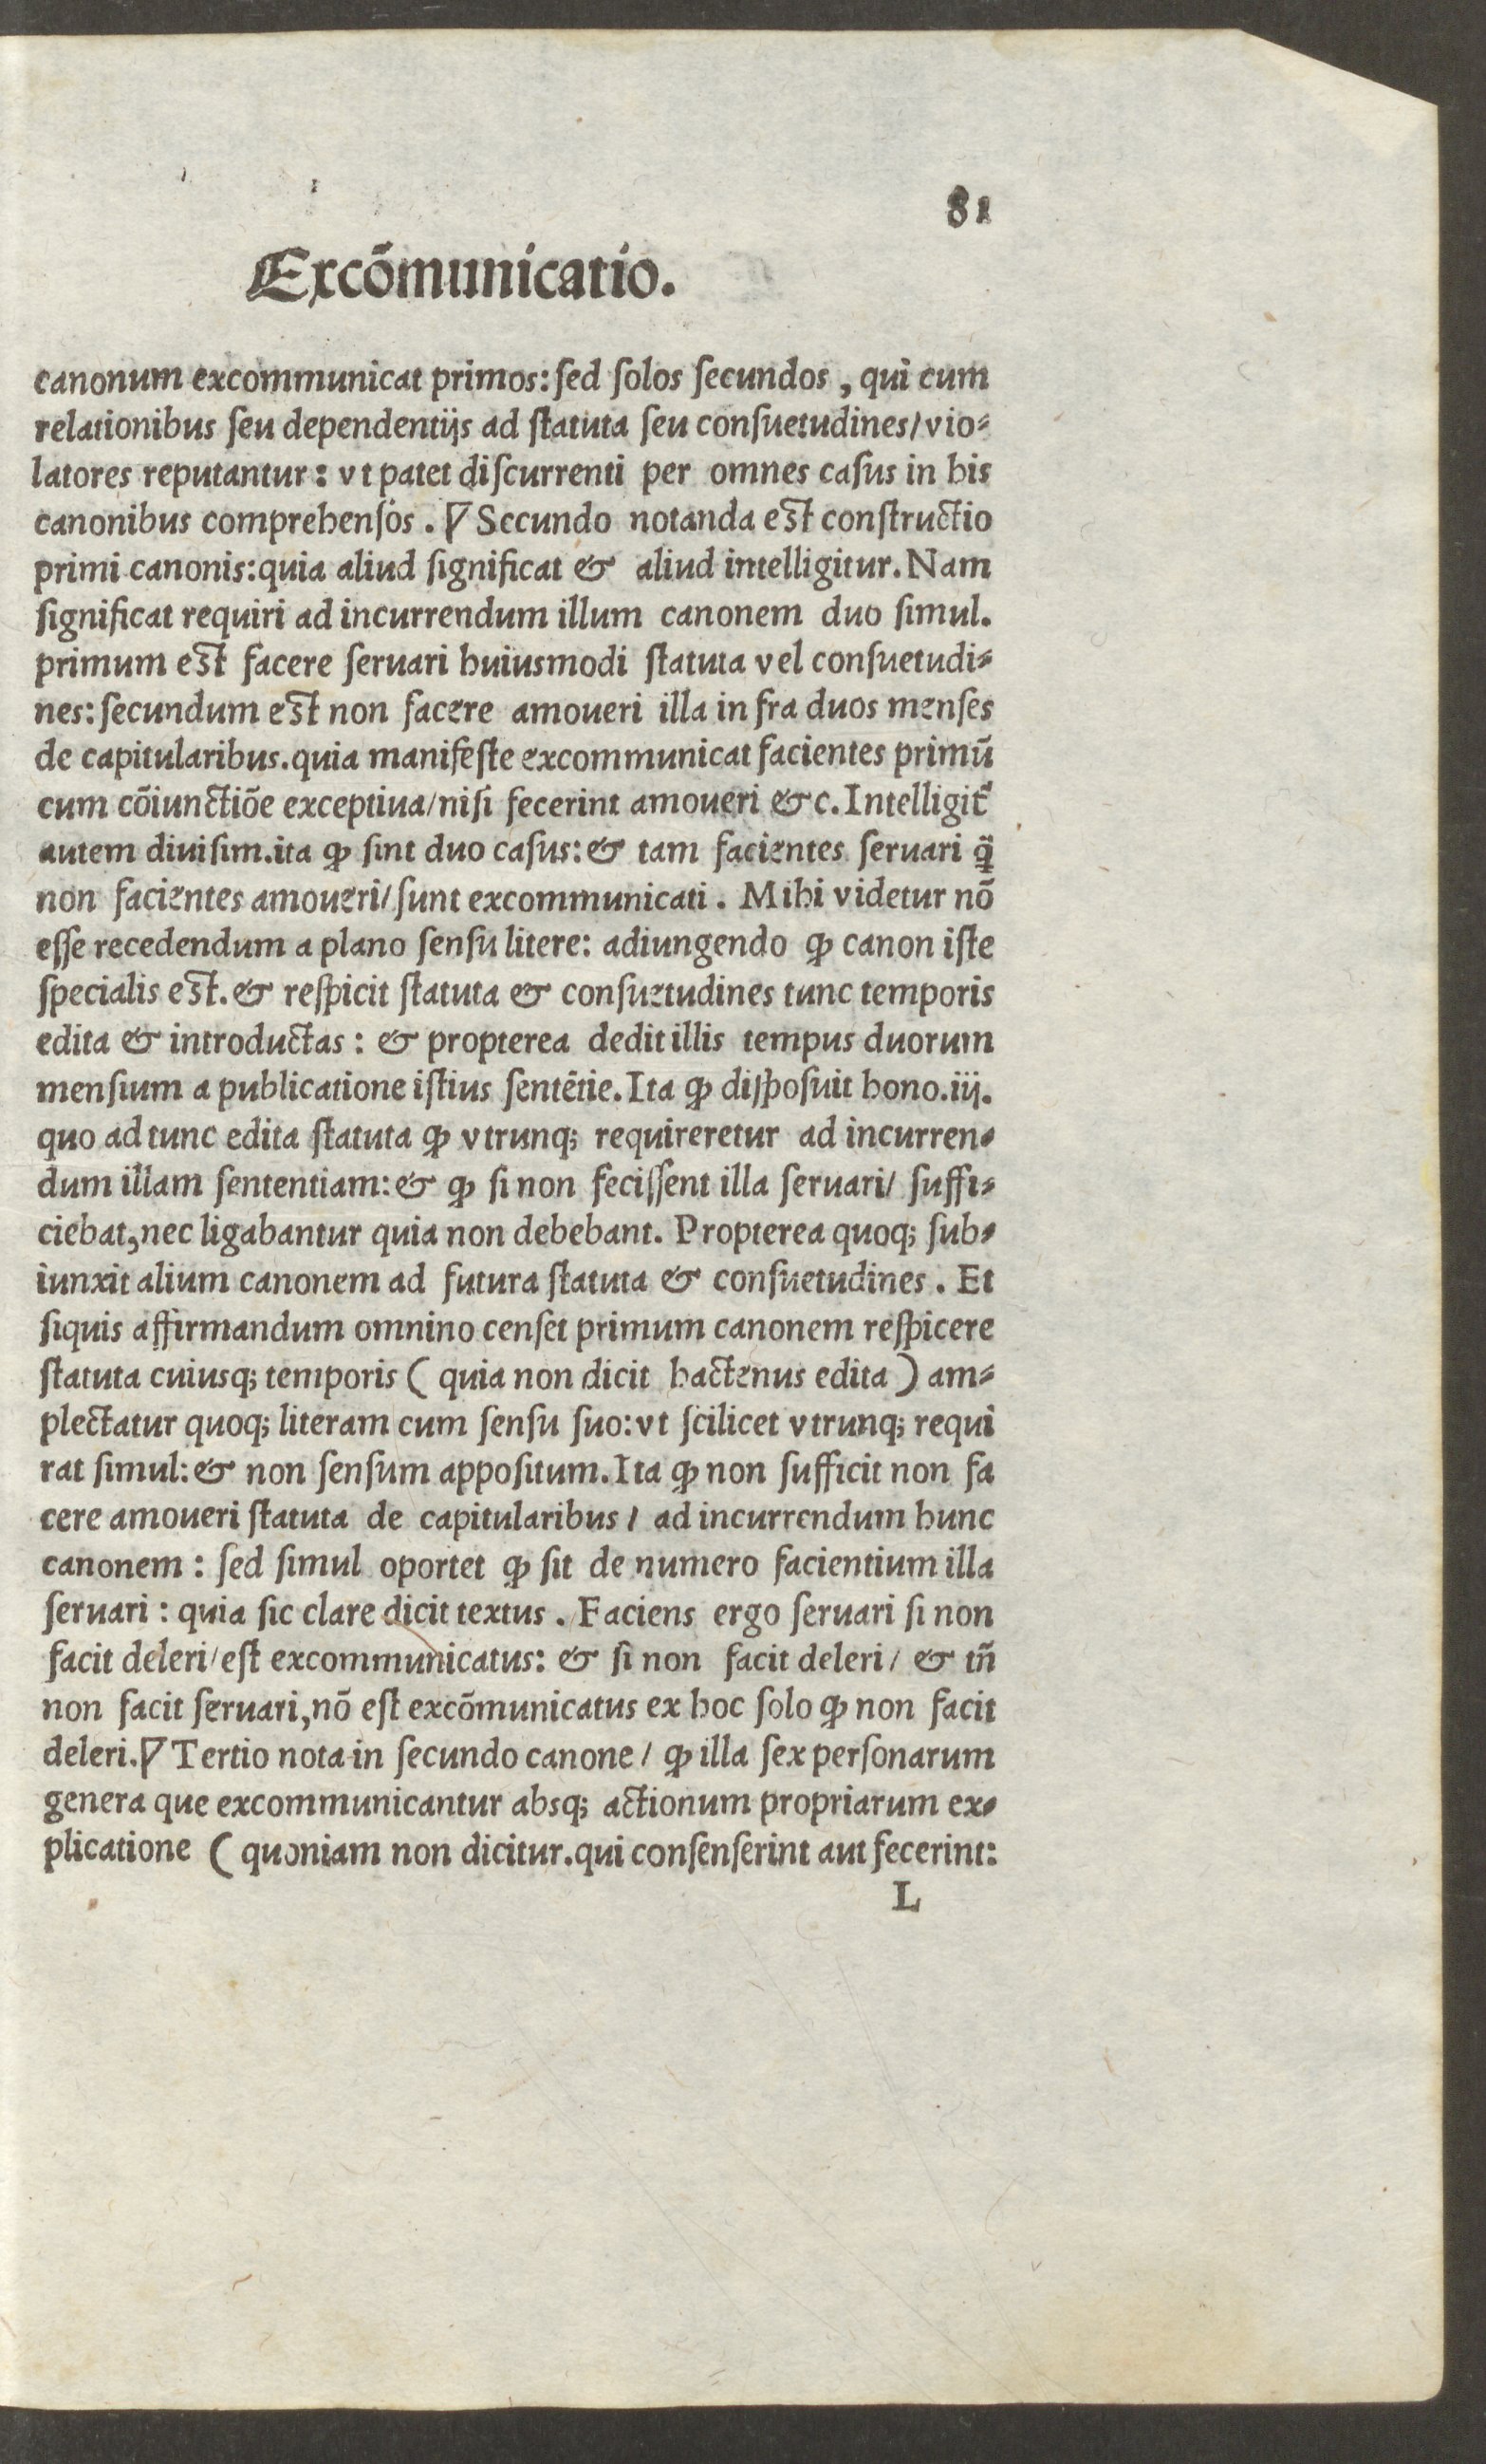 81
Excõmunicatio.
canonum excommunicat primos: ſed ſolos ſecundos, qui cum
relationibus ſeu dependentijs ad ſtatuta ſeu conſuetudines/ vio-
latores reputantur: vt patet diſcurrenti per omnes caſus in his
canonibus comprehenſos. ¶ Secundo notanda eſt conſtructio
primi canonis: quia aliud ſignificat & aliud intelligitur. Nam
ſignificat requiri ad incurrendum illum canonem duo ſimul.
primum eſt facere ſeruari huiusmodi ſtatuta vel conſuetudi-
nes: ſecundum eſt non facere amoueri illa infra duos menſes
de capitularibus. quia manifeſte excommunicat facientes primũ
cum cõiunctiõe exceptiua/ niſi fecerint amoueri &c. Intelligit᷑
autem diuiſim. ita ꝙ ſint duo caſus: & tam facientes ſeruari q̃
non facientes amoueri/ ſunt excommunicati. Mihi videtur nõ
eſſe recedendum a plano ſenſu litere: adiungendo ꝙ canon iſte
ſpecialis eſt. & reſpicit ſtatuta & conſuetudines tunc temporis
edita & introductas: & propterea dedit illis tempus duorum
menſium a publicatione iſtius ſentẽtie. Ita ꝙ diſpoſuit hono. iij.
quo ad tunc edita ſtatuta ꝙ vtrunq; requireretur ad incurren-
dum illam ſententiam: & ꝙ ſi non feciſſent illa ſeruari/ ſuffi-
ciebat, nec ligabantur quia non debebant. Propterea quoq; ſub-
iunxit alium canonem ad futura ſtatuta & conſuetudines. Et
ſiquis affirmandum omnino cenſet primum canonem reſpicere
ſtatuta cuiusq; temporis (quia non dicit hactenus edita) am-
plectatur quoq; literam cum ſenſu ſuo: vt ſcilicet vtrunq; requi
rat ſimul: & non ſenſum appoſitum. Ita ꝙ non ſufficit non fa
cere amoueri ſtatuta de capitularibus/ ad incurrendum hunc
canonem: ſed ſimul oportet ꝙ ſit de numero facientium illa
ſeruari: quia ſic clare dicit textus. Faciens ergo ſeruari ſi non
facit deleri/ eſt excommunicatus: & ſi non facit deleri/ & tñ
non facit ſeruari, nõ eſt excõmunicatus ex hoc ſolo ꝙ non facit
deleri. ¶ Tertio nota in ſecundo canone/ ꝙ illa ſex perſonarum
genera que excommunicantur absq; actionum propriarum ex-
plicatione (quoniam non dicitur. qui conſenſerint aut fecerint:
L